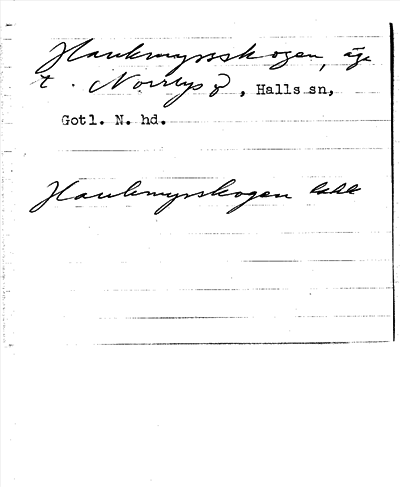 Haukmyrsskogen, äga
t. Norrbys, Halls sn,
Gotl. N. hd.
Haukmyrskogen